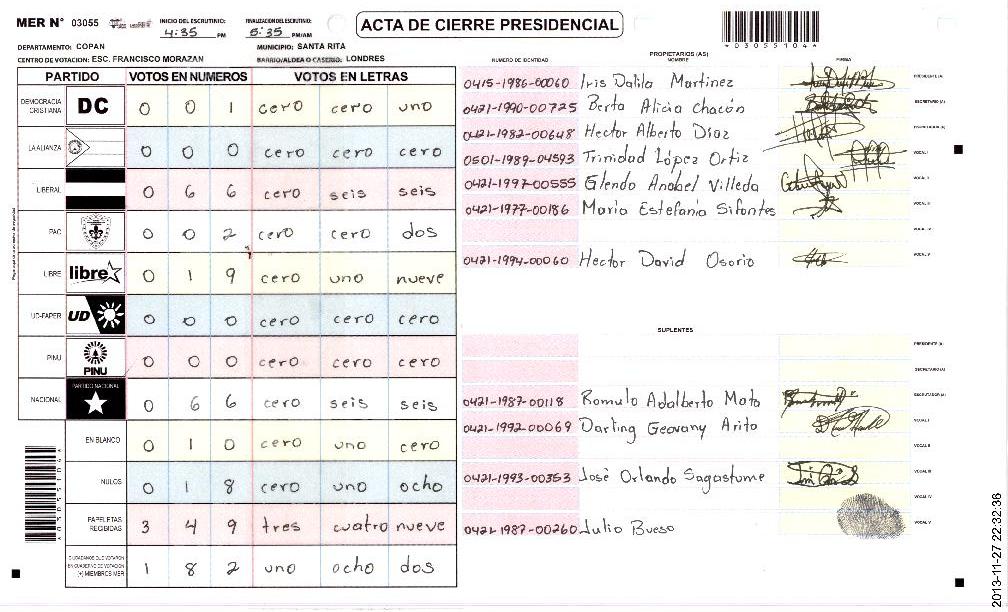 MER N° 03055
INICIO DEL ESCRUTINIO: 4:35 PM
FINALIZACION DEL ESCRUTINIO: 5:35 PM/AM
ACTA DE CIERRE PRESIDENCIAL
*03055104*
DEPARTAMENTO: COPAN
MUNICIPIO: SANTA RITA
CENTRO DE VOTACION: ESC. FRANCISCO MORAZAN
BARRIO/ALDEA O CASERIO: LONDRES
PARTIDO VOTOS EN NUMEROS VOTOS EN LETRAS
DEMOCRACIA CRISTIANA DC 0 0 1 cero cero uno
LA ALIANZA 0 0 0 cero cero cero
LIBERAL 0 6 6 cero seis seis
PAC 0 0 2 cero cero dos
LIBRE libre 0 1 9 cero uno nueve
UD-FAPER UD 0 0 0 cero cero cero
PINU PINU 0 0 0 cero cero cero
NACIONAL PARTIDO NACIONAL 0 6 6 cero seis seis
EN BLANCO 0 1 0 cero uno cero
NULOS 0 1 8 cero uno ocho
PAPELETAS RECIBIDAS 3 4 9 tres cuatro nueve
CIUDADANOS QUE VOTARON EN CUADERNO DE VOTACION (+) MIEMBROS MER 1 8 2 uno ocho dos
PROPIETARIOS (AS)
NUMERO DE IDENTIDAD NOMBRE FIRMA
0415-1986-00060 Iris Dalila Martinez PRESIDENTE (A)
0421-1990-00725 Berta Alicia Chacón SECRETARIO (A)
0421-1982-00648 Hector Alberto Díaz ESCRUTADOR (A)
0501-1989-04593 Trinidad López Ortiz VOCAL I
0421-1997-00555 Glenda Anabel Villeda VOCAL II
0421-1977-00186 Maria Estefania Sifontes VOCAL III
VOCAL IV
0421-1994-00060 Hector David Osorio VOCAL V
SUPLENTES
PRESIDENTE (A)
SECRETARIO (A)
0421-1987-00118 Romulo Adalberto Mata ESCRUTADOR (A)
0421-1992-00069 Darling Geovany Arito VOCAL I
VOCAL II
0421-1993-00353 José Orlando Sagastume VOCAL III
VOCAL IV
0421-1987-00260 Julio Bueso VOCAL V
2013-11-27 22:32:36